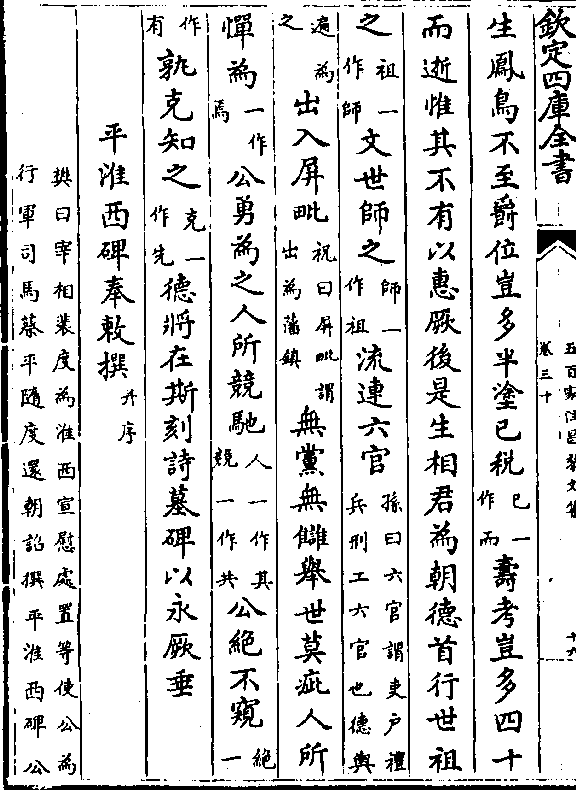 欽定四庫全書
五百家注昌黎文集
卷三十
十六
生鳳鳥不至爵位豈多半塗已税已一作而壽考豈多四十
而逝惟其不有以惠厥後是生相君為朝德首行世祖
之祖一作師文世師之師一作祖流連六官孫曰六官謂吏户禮兵刑工六官也德輿
遍為之出入屏毗祝曰屏毗謂出為藩鎮無黨無讎舉世莫疵人所
憚為一作焉公勇為之人所競馳人一作其競一作共公絶不窺絶一
作有孰克知之克一作先德將在斯刻詩墓碑以永厥垂
平淮西碑奉敕撰并序
樊曰宰相裴度為淮西宣慰處置等使公為
行軍司馬蔡平隨度還朝詔撰平淮西碑公